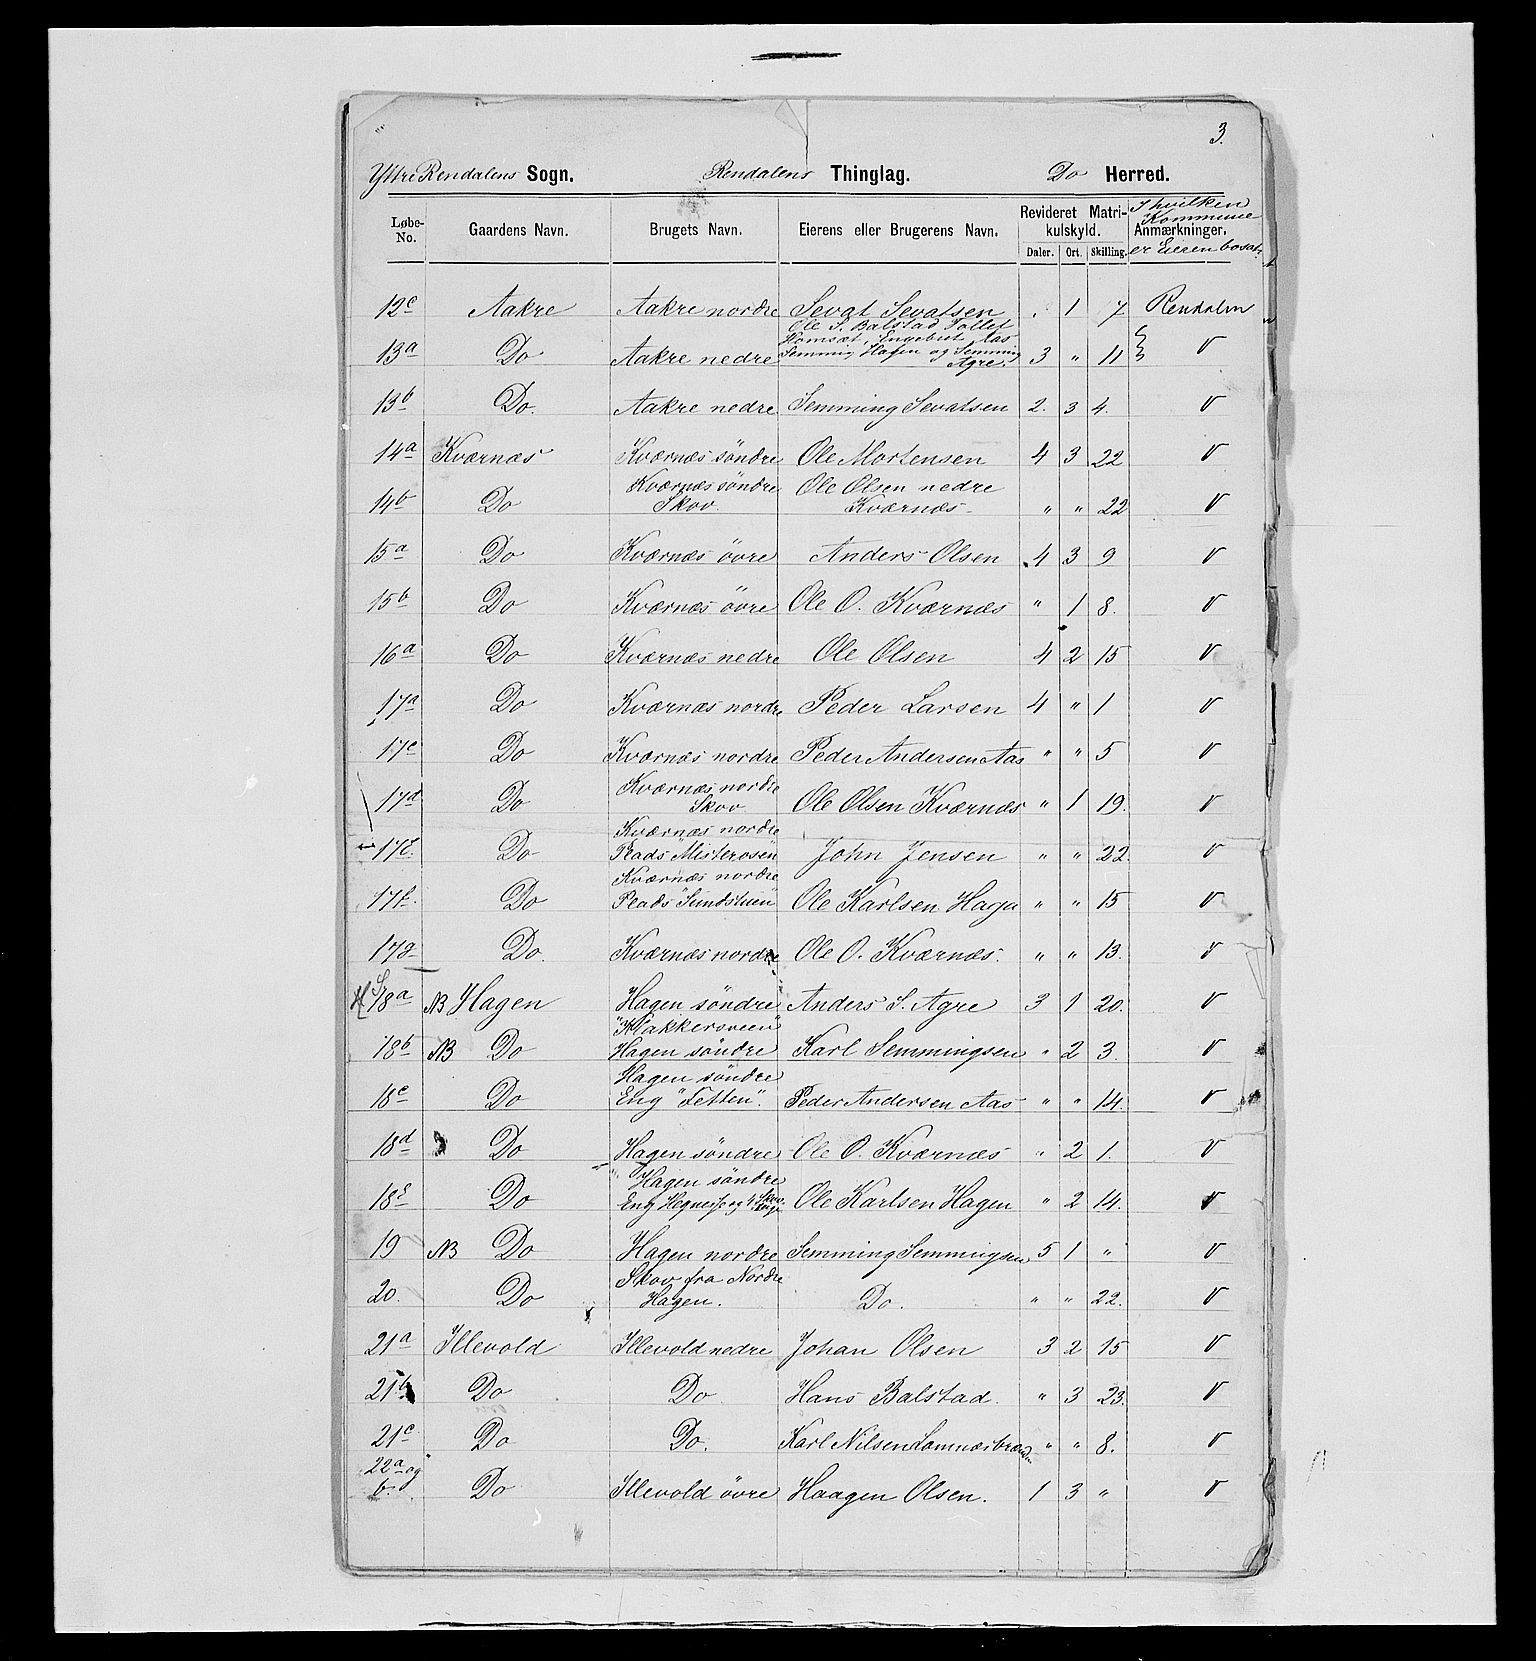 3.
Yttre Rendalens Sogn. Rendalens Thinglag. Do Herred.
Løbe-No. Gaardens Navn. Brugets Navn. Eierens eller Brugerens Navn. Revideret Matrikulskyld. Daler. Ort. Skilling. I hvilken Kommune Anmærkninger. er Eieren bosat.
12c Aakre Aakre nordre Sevat Sevatsen . 1 7 Rendalen
13a Do Aakre nedre Ole S. Balstad Tollef Homsæt, Engebret Aas Semming Hagen og Semming Agre. 3 " 11 V
13b Do. Aakre nedre Semming Sevatsen 2. 3 4. V
14a Kværnæs Kværnæs söndre Ole Mortensen 4 3 22 V
14b Do Kværnæs söndre Skov. Ole Olsen nedre Kværnæs " " 22 V
15a Do Kværnæs övre Anders Olsen 4 3 9 V
15b Do Kværnæs övre Ole O. Kværnæs " 1 8. V
16a Do Kværnæs nedre Ole Olsen 4 2 15 V
17a Do Kværnæs nordre Peder Larsen 4 " 1 V
17c Do Kværnæs nordre Peder Andersen Aas " " 5 V
17d Do Kværnæs nordre Skov Ole Olsen Kværnæs " 1 19. V
17e. Do Kværnæs nordre Plads "Misterosen" John Jensen " " 22. V
17f. Do Kværnæs nordre Plads "Sundstuen" Ole Karlsen Haga " " 15 V
17g Do. Kværnæs nordre Ole O. Kværnæs. " " 13. V
18a NB Hagen Hagen söndre Anders S. Agre 3 1 20. V
18b NB Do "Klakkersveen" Hagen söndre Karl Semmingsen " 2 3. V
18c Do Hagen söndre Eng "Tetten". Peder Andersen Aas " " 14. V
18d Do Hagen söndre Ole O. Kværnæs " 2 1. V
18e Do Hagen söndre Eng og Ole Karlsen Hagen " 2 14. V
19 NB Do Hagen nordre Semming Semmingsen 5 1 " V
20. Do Skov fra Nordre Hagen. Do. " " 22. V
21a Illevold Illevold nedre Johan Olsen 3 2 15 V
21b Do Do Hans Balstad. " 3 23. V
21c Do Do. Karl Nilsen " " 8. V
22a og b. Do Illevold övre Haagen Olsen. 1 3 " V